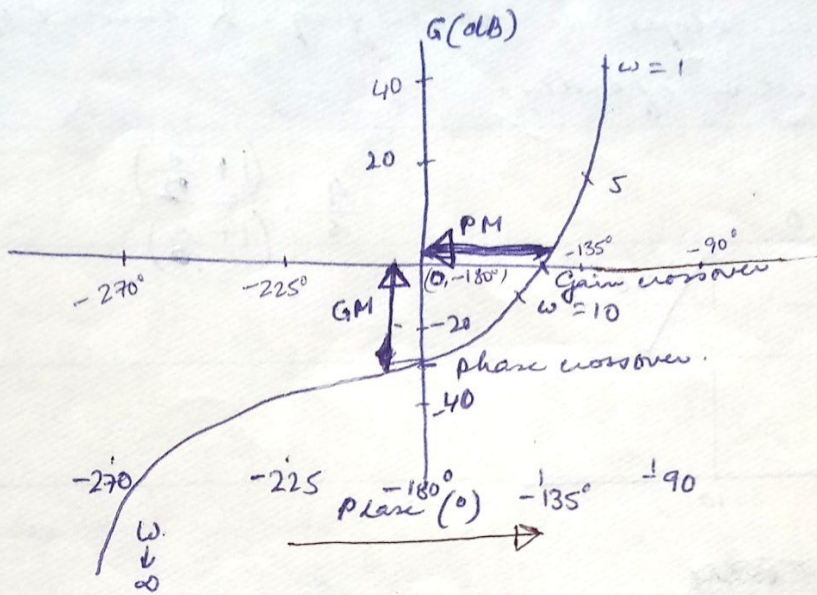 G(dB)
40
ω = 1
20
5
PM
-135°
-90°
-270°
-225°
(0, -180°)
Gain crossover
GM
-20
ω = 10
phase crossover.
-40
-270
-225
-180°
-135°
-90
Phase (0)
ω
↓
∞